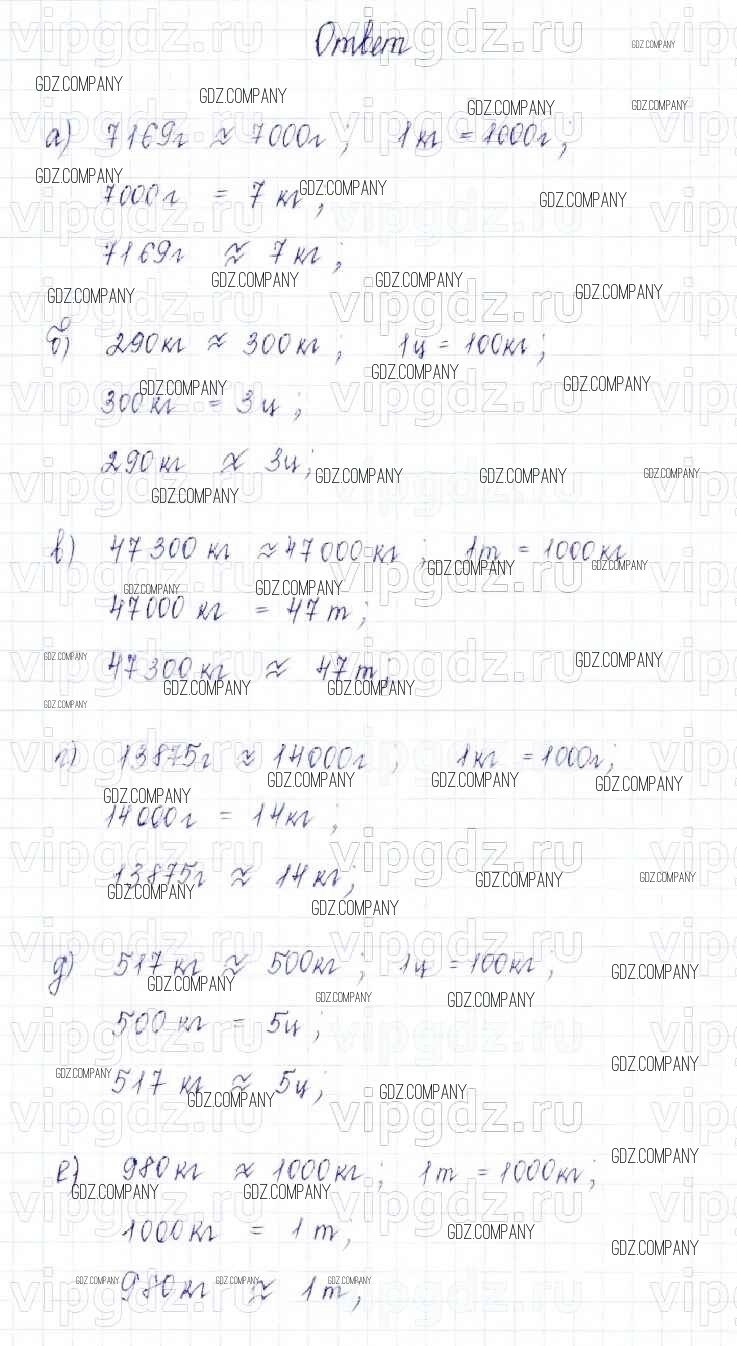 Ответ
а) 7169г ≈ 7000г; 1кг = 1000г;
7000г = 7 кг;
7169г ≈ 7кг;
б) 290кг ≈ 300кг; 1ц = 100кг;
300кг = 3ц;
290кг ≈ 3ц;
в) 47300 кг ≈ 47000 кг; 1т = 1000кг
47000 кг = 47 т;
47300 кг ≈ 47т;
г) 13875г ≈ 14000г; 1кг = 1000г;
14000г = 14кг;
13875г ≈ 14кг;
д) 517 кг ≈ 500кг; 1ц = 100кг;
500 кг = 5ц;
517 кг ≈ 5ц;
е) 980кг ≈ 1000кг; 1т = 1000кг;
1000кг = 1 т;
980кг ≈ 1т;
vipgdz.ru
GDZ.COMPANY